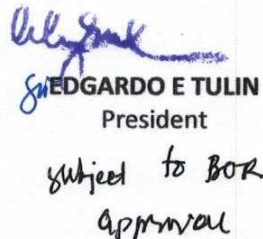 EDGARDO E TULIN
President
subject to BOR
approval